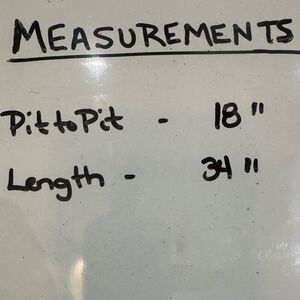 MEASUREMENTS
Pit to Pit - 18"
Length - 34"